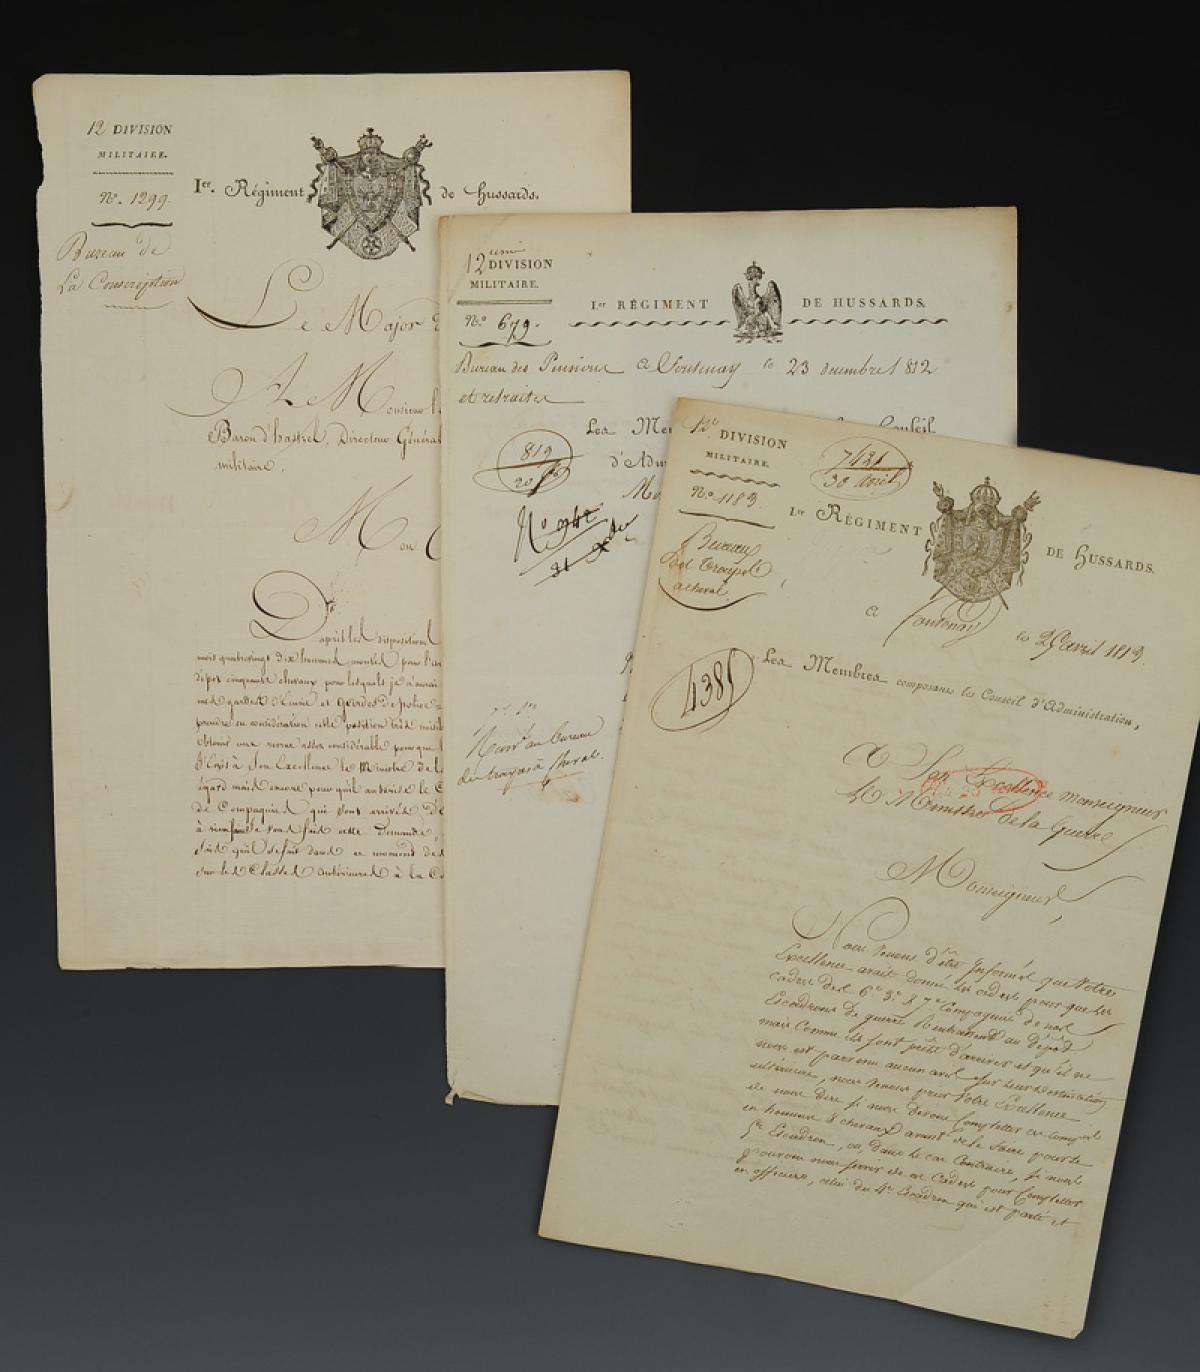 12 DIVISION
MILITAIRE.
N.º 1299.
Bureau de
La Conscription
Ier. Régiment de Hussards.
Le Major
A Monsieur
Baron d'hastrel, Directeur Général
militaire.
Mon
D'après les dispositions
mois quatrevingt dix hommes montés pour l'ar
dépôt cinquante chevaux pour lesquels je n'aurai
mes gardes d'Ecurie et gardes de police
prendre en considération cette position
obtenir une remise assez considérable pour que
Son Excellence le Ministre de la
égard mais encore pour qu'il autorise le
de Compagnies qui sont arrivés
fait cette demande,
qu'il se fait dans ce moment des
sur les Classes antérieures à la
12eme DIVISION
MILITAIRE.
N.º 679.
I.er RÉGIMENT DE HUSSARDS.
Bureau des Pensions a Fontenay le 23 decembre 1812
et retraites
Les Mem Conseil
d'Adm
819
20
Mo
N.º 942
31
au bureau
des troupes à cheval.
12.e DIVISION
MILITAIRE.
N.º 1183.
7421
30 avril
I.er RÉGIMENT DE HUSSARDS.
Bureau
des troupes
a cheval.
a Fontenay le 25 avril 1813.
4385
Les Membres composant le Conseil d'Administration,
A Son Excellence Monseigneur
le Ministre de la Guerre
Monseigneur,
Nous venons d'être Informés que Votre
Excellence avait donné les ordres pour que les
cadres des 6.e 3.e & 7.e Compagnies de nos
Escadrons de guerre Rentrassent au dépôt
mais Comme ils sont prêts d'arriver et qu'il ne
nous est parvenu aucun avis sur leur destination
ultérieure, nous venons prier Votre Excellence
de nous dire si nous devons Completter
en hommes & chevaux avant de le faire pour le
5.e Escadron, ou, dans le cas Contraire, si nous
pouvons nous servir de ce Cadre pour Completter
en officiers, celui du 4.e Escadron qui est parti et